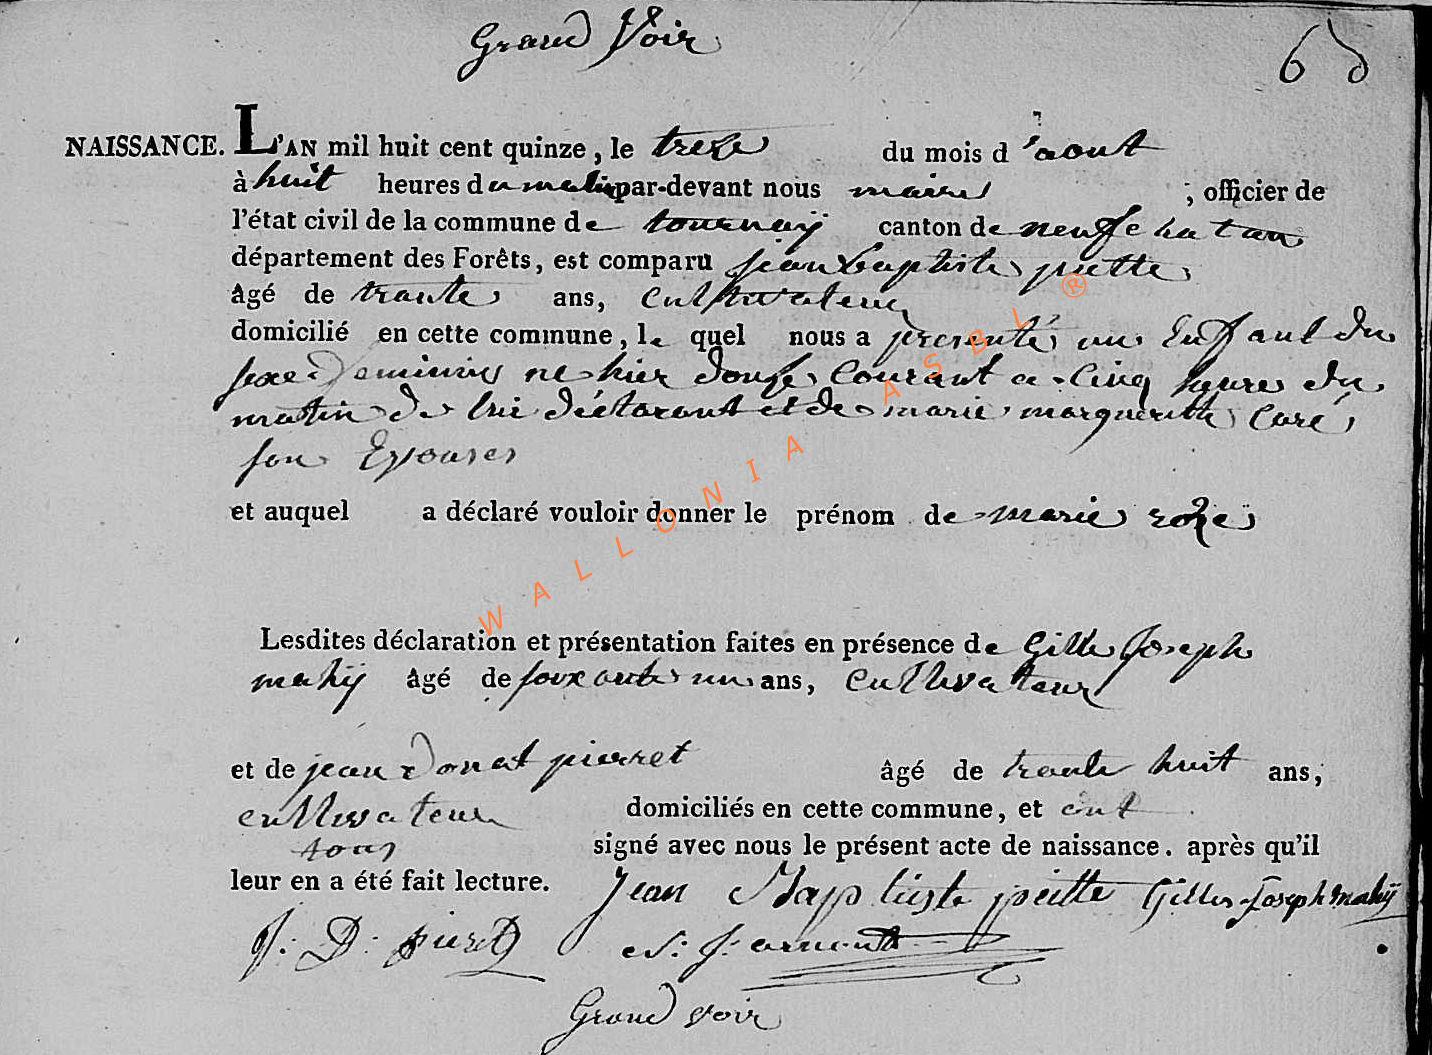 Grand Voir
6
NAISSANCE. L'AN mil huit cent quinze, le treze du mois d'aout
à huit heures du matin par-devant nous maire ; officier de
l'état civil de la commune de tournaÿ canton de neuffchatau
département des Forêts, est comparu jean baptiste piette
âgé de trante ans, cultivateur
domicilié en cette commune, le quel nous a presenté un enffant du
sexe feminin ne hier douse courant a cinq heure du
matin de lui déclarant et de marie margueritte Caré
son Epouse
et auquel a déclaré vouloir donner le prénom de marie roze
Lesdites déclaration et présentation faites en présence de Gille Joseph
mahÿ âgé de soixante un ans, cultivateur
et de jean donat pierret âgé de trante huit ans,
cultivateur domiciliés en cette commune, et ont
tous signé avec nous le présent acte de naissance. après qu'il
leur en a été fait lecture. Jean Baptiste piette Gilles Joseph mahÿ
J: D: pieret
Grand voir
WALLONIA ASBL ®